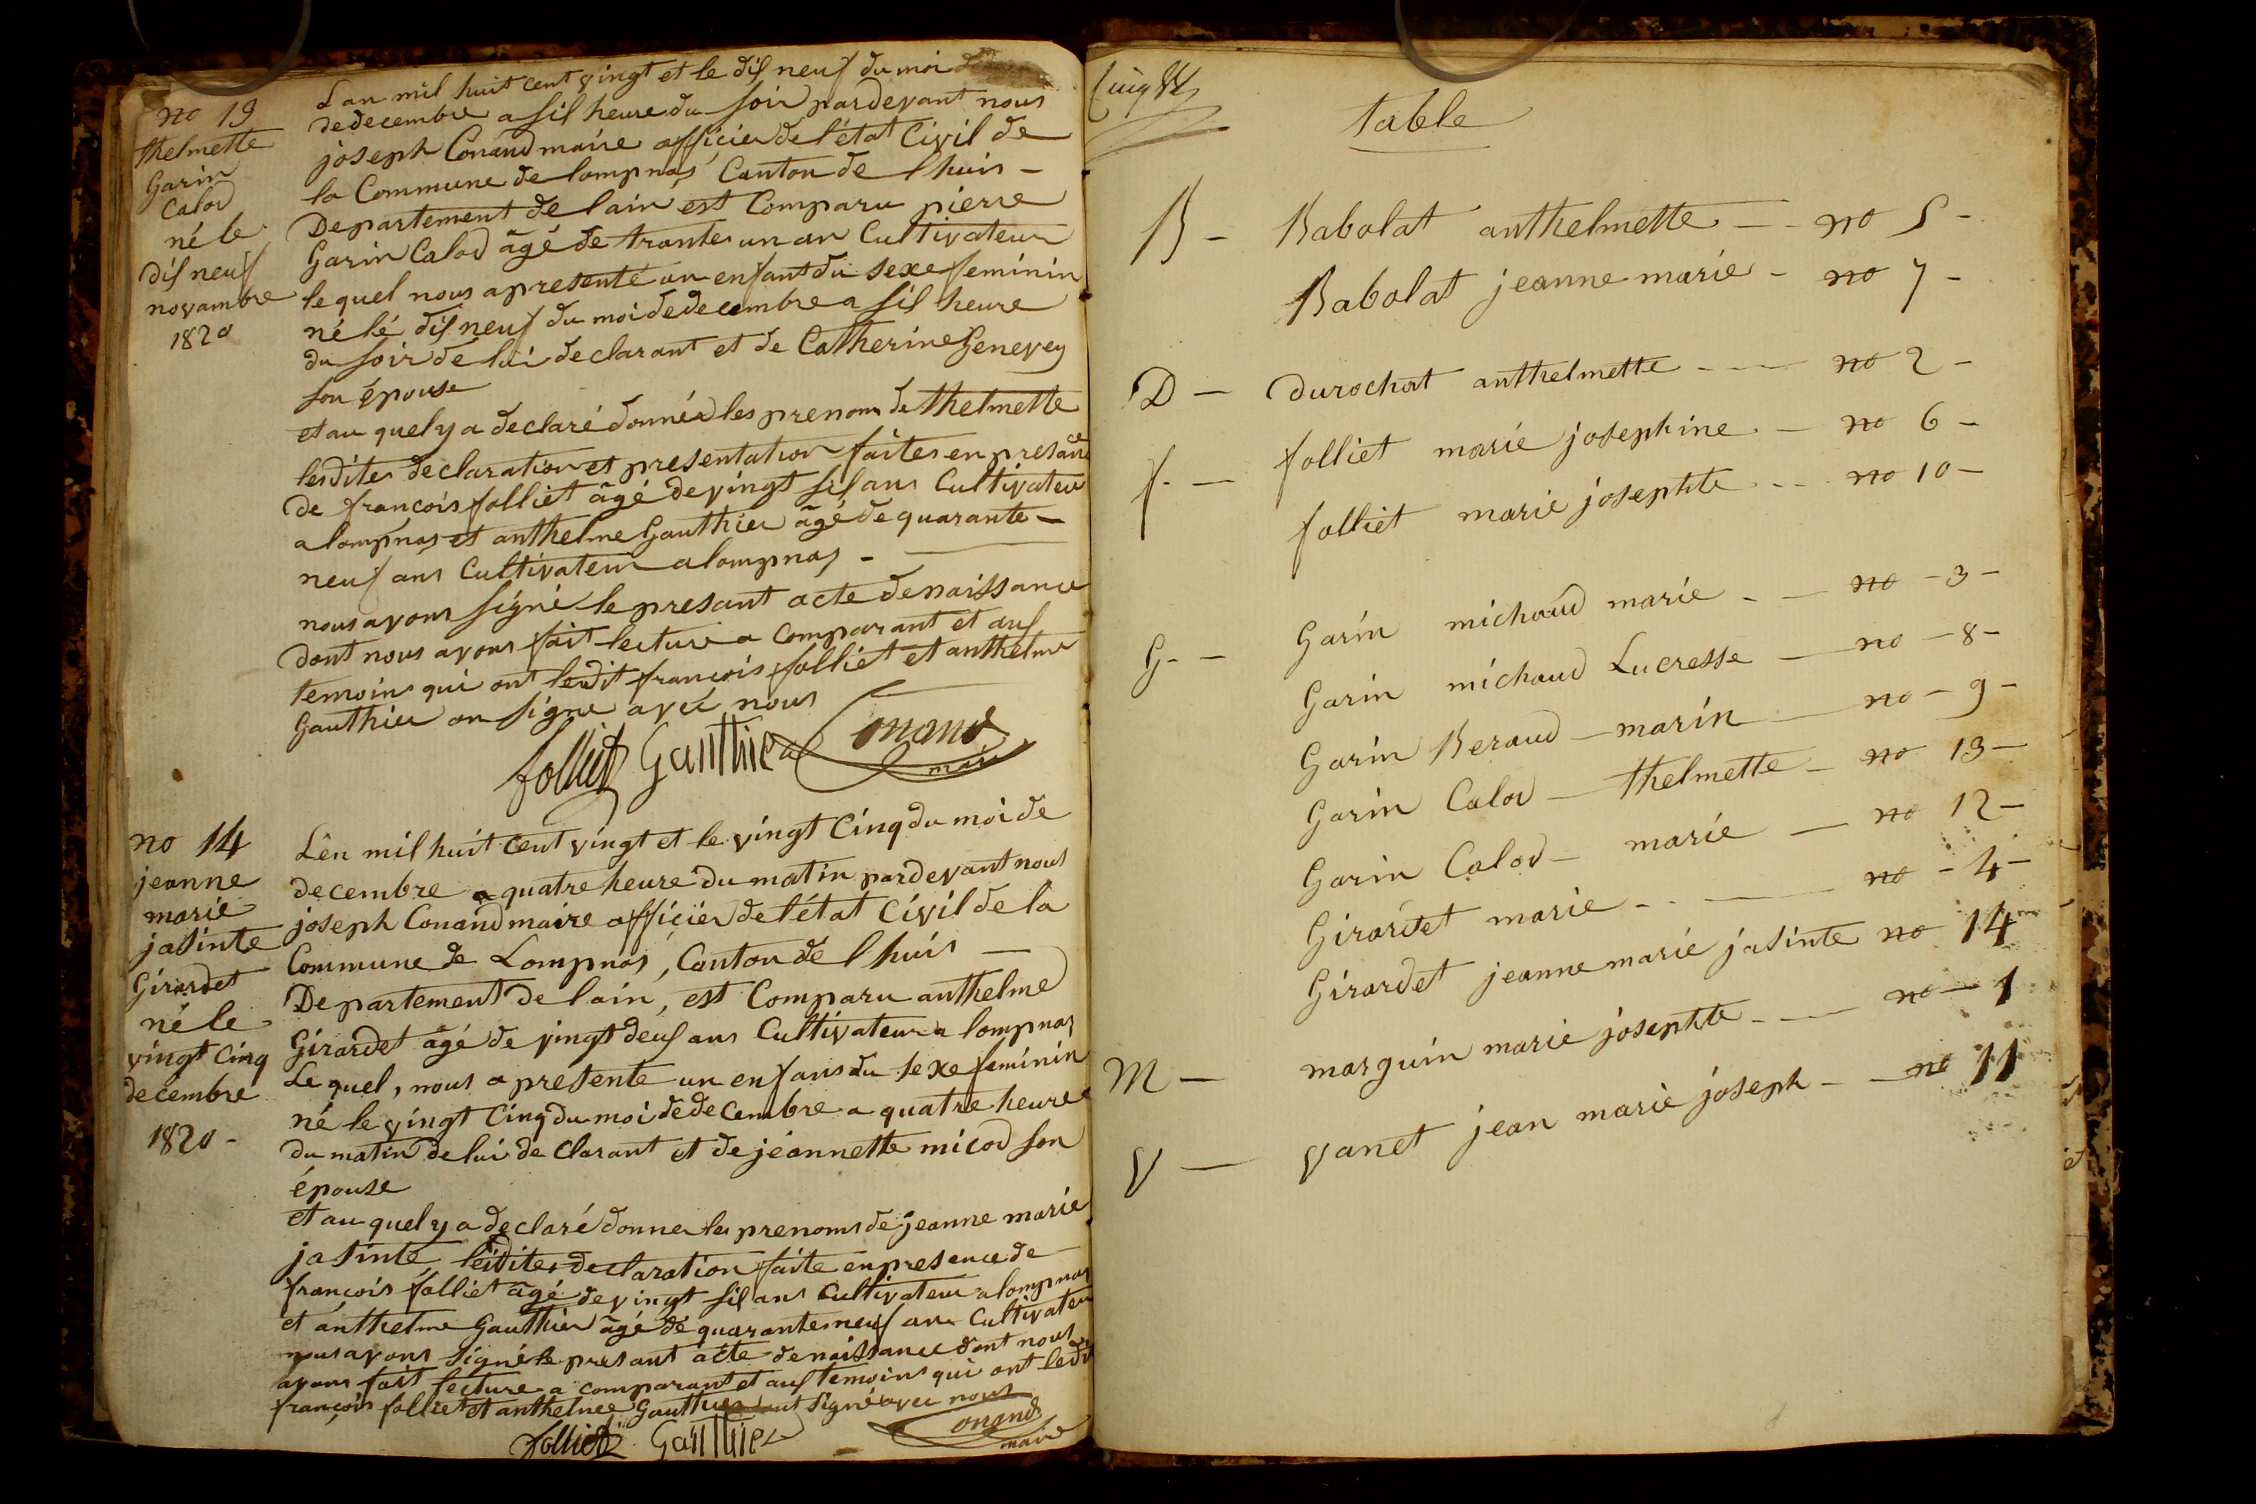 no 13
thelmette
Garin
Calod
né le
dis neuf
novambre
1820
Lan mil huit cent vingt et le dis neuf du moi
de decembre a sil heure du soir pardevant nous
joseph Conand maire officier de l'état Civil de
la Commune de lompnas Canton de lhuis -
Departement de lain est Comparu pierre
Garin Calod âgé de trante un an Cultivateur
le quel nous a presenté un enfant du sexe feminin
né lé dis neuf du moi de decembre a sil heure
du soir de lui declarant et de Catherine Genevey
son épouse
et au quel y a declaré donnér les prenom de thelmette
lesdites declaration et presentation faites en presance
de francois folliet âgé de vingt sil ans Cultivateur
a lompnas et anthelme Gauthier âgé de quarante -
neuf ans Cultivateur a lompnas -
nous avons signé le presant acte de naissance
dont nous avons fait lecture a comparant et aus
temoins qui ont ledit francois folliet et anthelme
Gauthier on signe avec nous
folliet Gauthier Conand
maire
no 14
jeanne
marie
jasinte
Girardet
né le
vingt Cinq
decembre
1820 -
Lên mil huit Cent vingt et le vingt Cinq du moi de
decembre a quatre heure du matin pardevant nous
joseph Conand maire officier de létat Civil de la
Commune de Lompnas, Canton de lhuis -
Departement de lain, est Comparu anthelme
Girardet âgé de vingt deus ans Cultivateur a lompnas
Le quel, nous a presente un enfans du sexe feminin
né le vingt Cinq du moi de decembre a quatre heure
du matin de lui de Clarant et de jéannette micod son
épouse
et au quel y a declaré donner les prenoms de jeanne marie
jasinte, lesdites declaration faite en presence de
francois folliet âgé de vingt sil ans Cultivateur a lompnas
et anthelme Gauthier âgé de quarante neuf ans Cultivateur
nous avons signé le presant acte de naissance dont nous
avons fait lecture a comparant et aus temoins qui ont ledit
francois folliet et anthelme Gauthier ont signé avec nous
folliet Gauthier Conand
maire
table
B - Babolat anthelmette - - no 5 -
Babolat jeanne marie - no 7 -
D - durochat anthelmette - - no 2 -
f. - folliet marie josephine - no 6 -
folliet marie josephte - - no 10 -
G - - Garin michaud marie - - no - 3 -
Garin michaud Lucresse - no - 8 -
Garin Beraud - marin - no - 9 -
Garin Calod - thelmette - no 13 -
Garin Calod - marie - no 12 -
Girardet marie - - - no - 4 -
Girardet jeanne marie jasinte no 14
M - marguin marie josephte - - no - 1
V - vanet jean marie joseph - - no 11